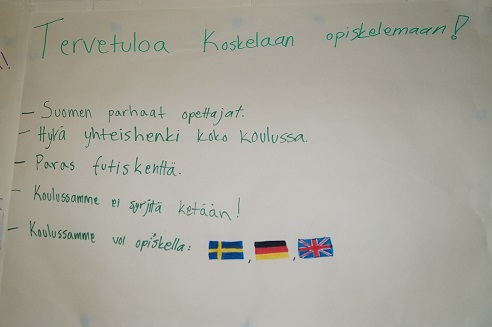 Tervetuloa Koskelaan opiskelemaan!
- Suomen parhaat opettajat.
- Hyvä yhteishenki koko koulussa
- Paras futiskenttä.
- Koulussamme ei syrjitä ketään!
- Koulussamme voi opiskella: , ,